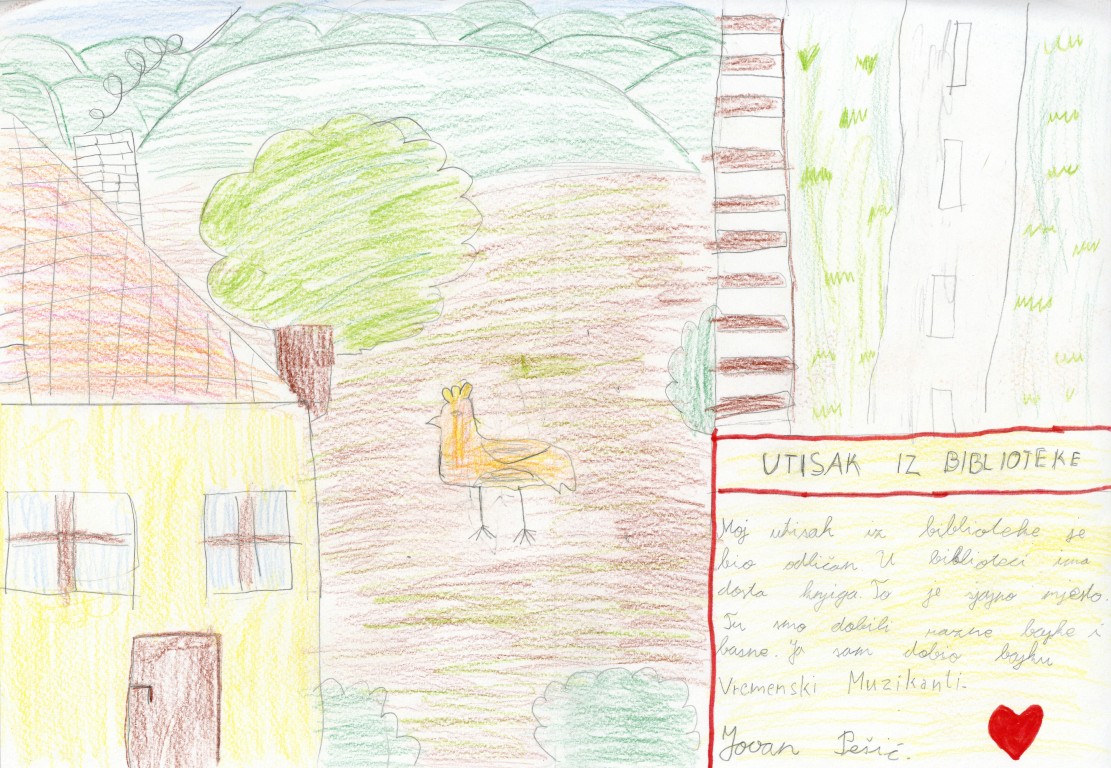 UTISAK IZ BIBLIOTEKE
Moj utisak iz biblioteke je
bio odličan. U biblioteci ima
dosta knjiga. To je sjajno mjesto.
Tu smo dobili razne bajke i
basne. Ja sam dobio bajku
Vremenski Muzikanti.
Jovan Pešić.